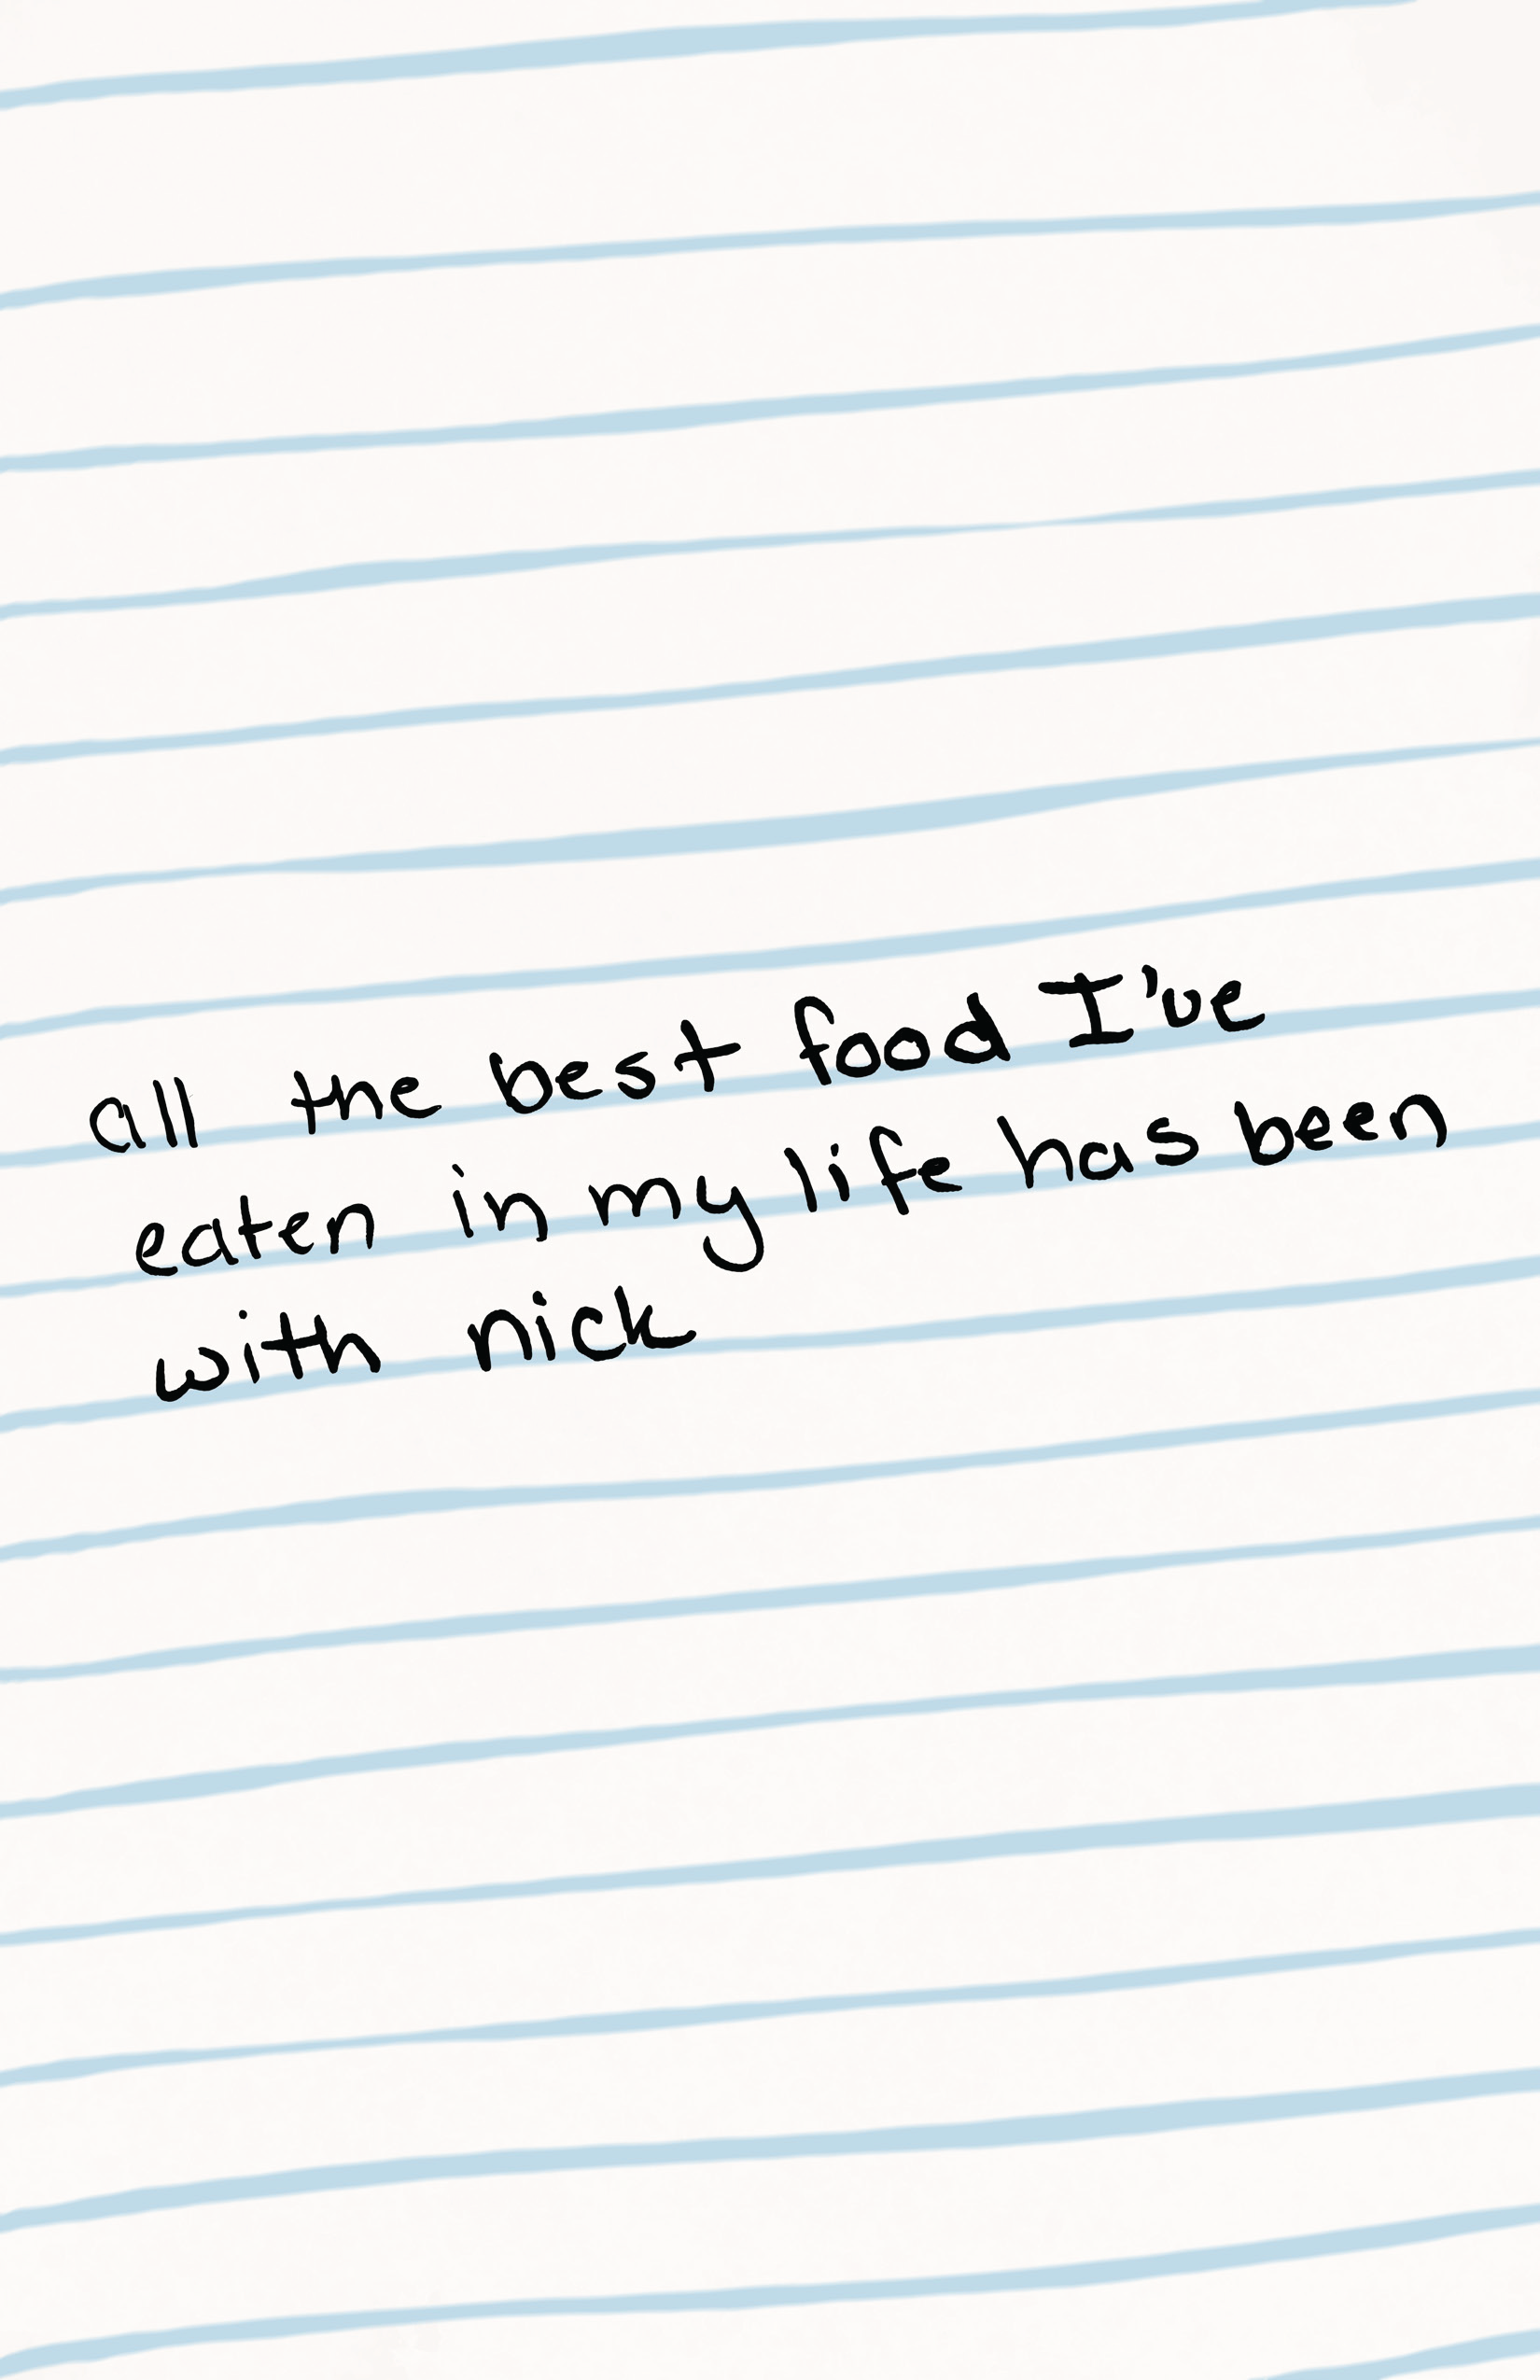 all the best food I've
eaten in my life has been
with nick